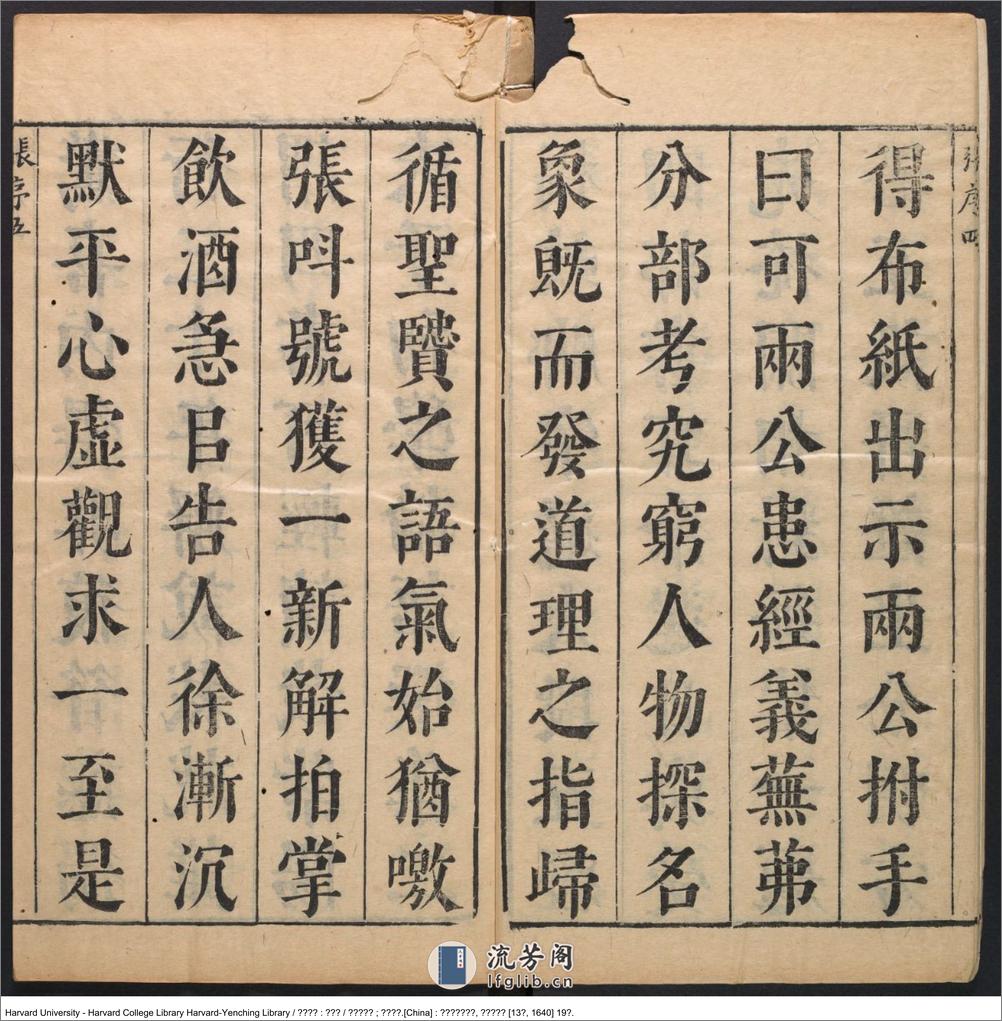 張序四
得布紙出示兩公拊手
曰可兩公患經義蕪茀
分部考究窮人物探名
象既而發道理之指歸
循聖賢之語氣始猶噭
張呌號獲一新解拍掌
飲酒急㠯告人徐漸沉
默平心虛觀求一至是
張序五
流芳阁
lfglib.cn
Harvard University - Harvard College Library Harvard-Yenching Library / ???? : ??? / ????? ; ????.[China] : ???????, ????? [13?, 1640] 19?.